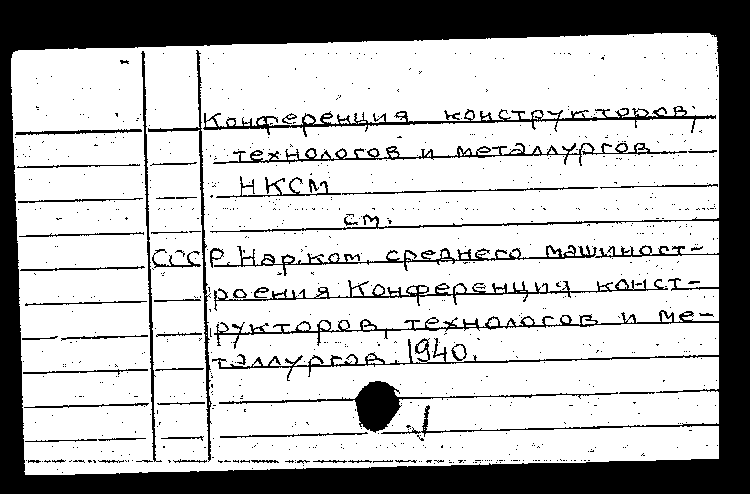 Конференция конструкторов,
технологов и металлургов
НКСМ
см.
СССР. Нар.ком. среднего машиност-
роения. Конференция конст-
рукторов, технологов и ме-
таллургов. 1940.